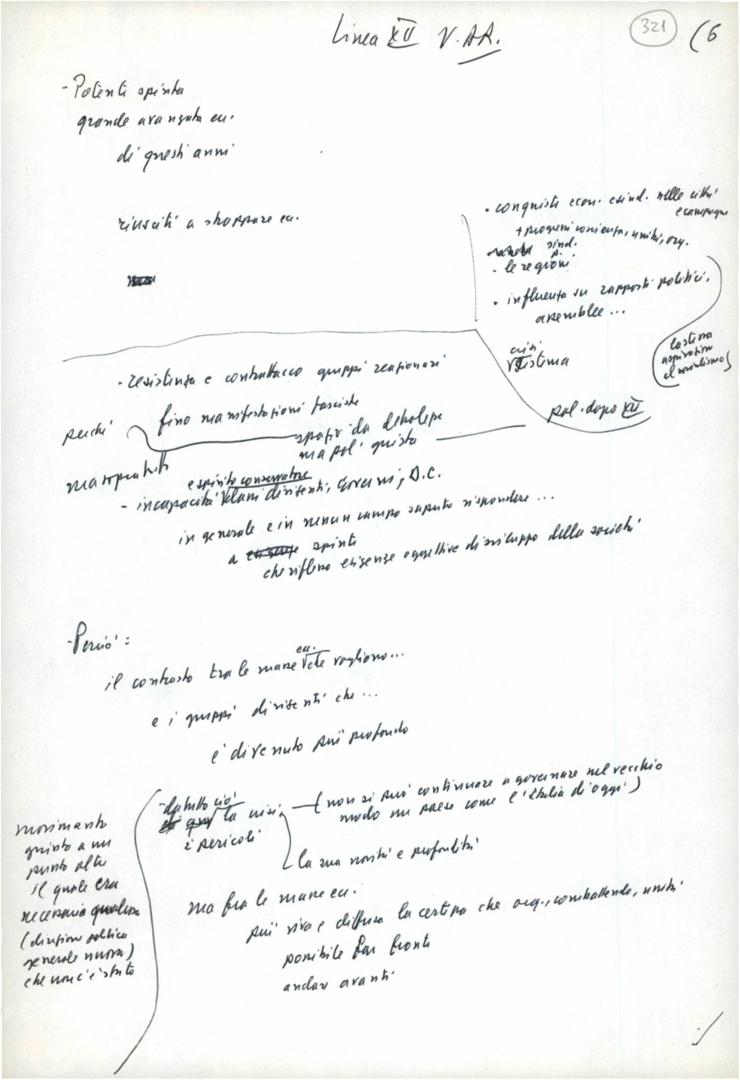 Linea XII V. AR.
321
(6
- Potente spinta
grande avanzata ecc.
di questi anni
riusciti a strappare ecc.
• conquiste econ. e sind. nelle città
e campagne
+ progressi coscienza, unità, org.
sind.
- le regioni
• influenza su rapporti politici,
assemblee...
crisi
sistema
(ostessa
aspirazione
al socialismo)
- resistenza e contrattacco gruppi reazionari
fino manifestazioni fasciste
perché
spazio da debolezze
ma pol' giusta
pol. dopo XII
ma soprattutto
e spirito conservatore
- incapacità classi dirigenti, governi, D.C.
in generale e in nessun campo saputo rispondere...
a spinte
che riflettono esigenze oggettive di sviluppo della società
- Perciò:
il contrasto tra le masse ecc. che vogliono...
e i gruppi dirigenti che...
è divenuto più profondo
- da tutto ciò
la crisi — (non si può continuare a governare nel vecchio
modo un paese come l'Italia di oggi)
i pericoli
la sua novità e profondità
movimento
giunto a un
punto alto
il quale era
necessaria qualcosa
(direzione politica
generale nuova)
che non c'è stato
ma fra le masse ecc.
più viva e diffusa la certezza che org., combattendo, uniti
possibile far fronte
andare avanti
./